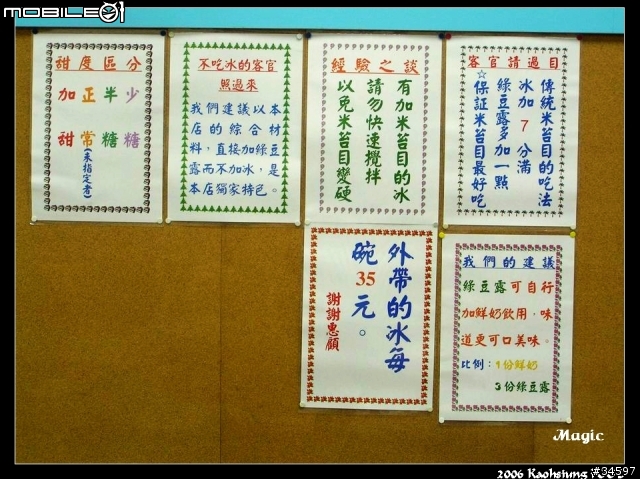 mobile01
甜度區分
加甜
正常(未指定者)
半糖
少糖
不吃冰的客官
照過來
我們建議以本
店的綜合材
料，直接加綠豆
露而不加冰，是
本店獨家特色。
經驗之談
有加米苔目的冰
請勿快速攪拌
以免米苔目變硬
客官請過目
傳統米苔目的吃法
冰加7分滿
綠豆露多加一點
☆保証米苔目最好吃
外帶的冰每
碗35元。
謝謝惠顧
我們的建議
綠豆露可自行
加鮮奶飲用，味
道更可口美味。
比例：1份鮮奶
3份綠豆露
Magic
2006 Kaohsiung
#34597